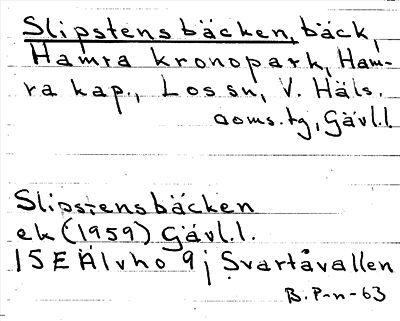 Slipstensbäcken, bäck,
Hamra kronopark, Ham-
ra kap., Los sn, V. Häls.
doms.tg, Gävl.l
Slipstensbäcken
ek (1959) Gävl.l.
15E Älvho 9j Svartåvallen
B. P-n-63